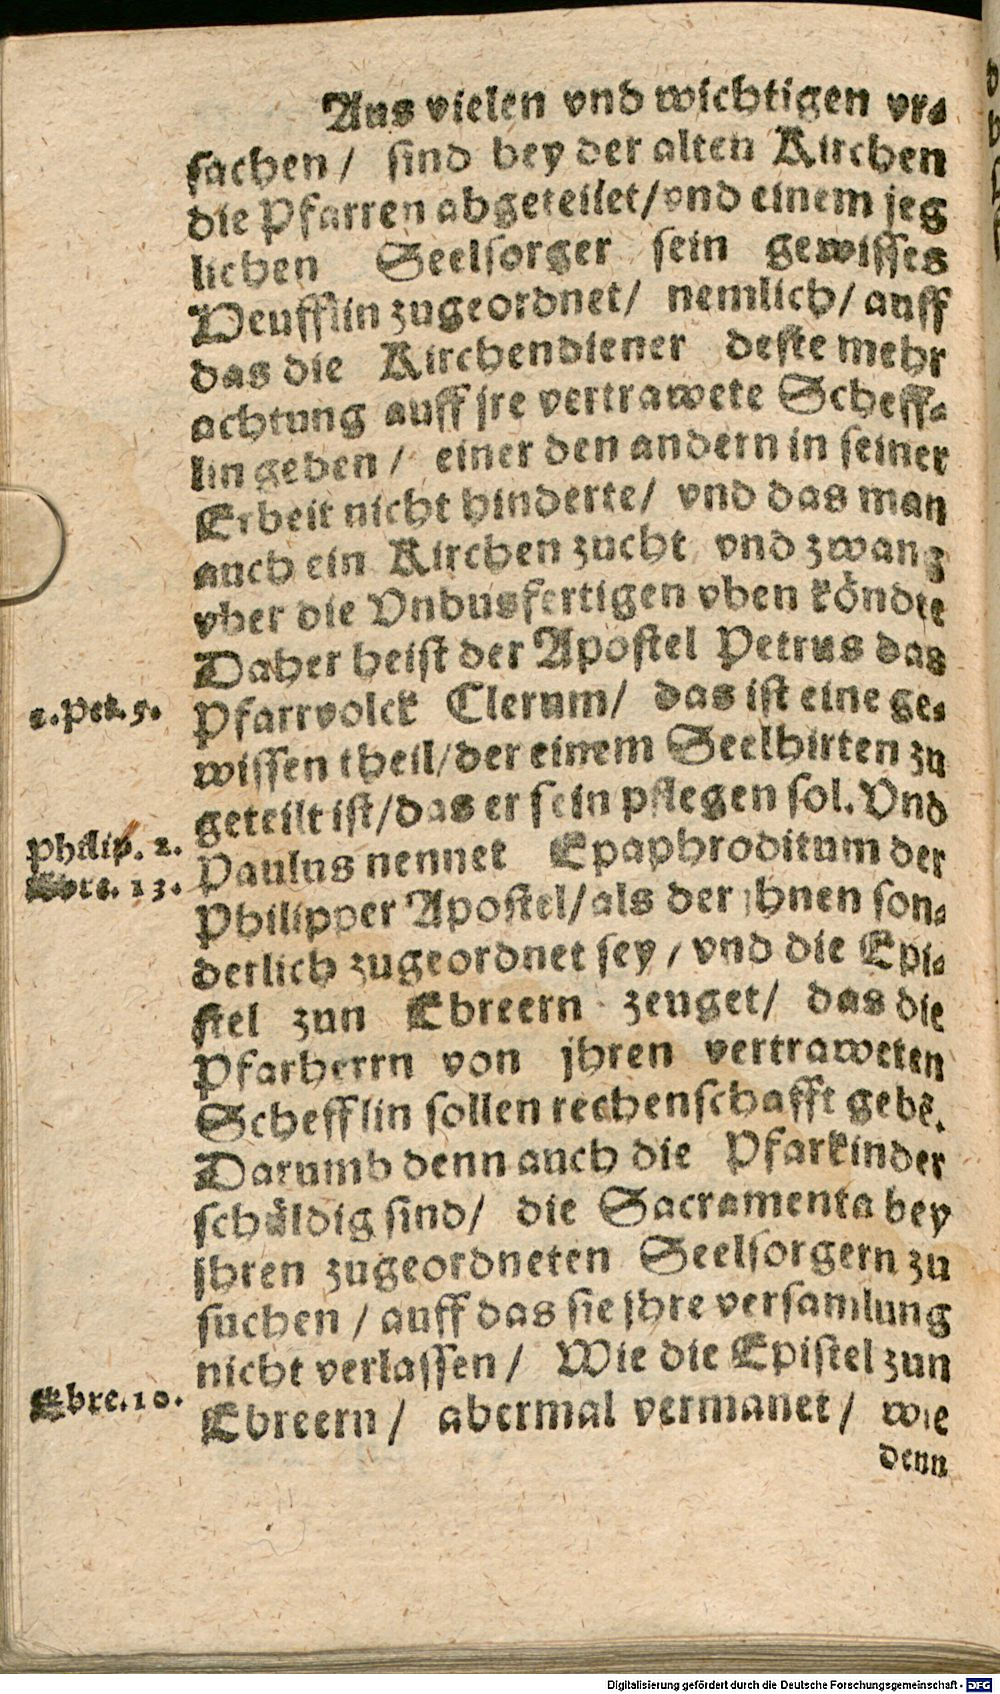 Aus vielen vnd wichtigen vr⸗
sachen / sind bey der alten Kirchen
die Pfarren abgeteilet / vnd einem jeg
lichen Seelsorger sein gewisses
Heufflin zugeordnet / nemlich / auff
das die Kirchendiener deste mehr
achtung auff jre vertrawete Scheff⸗
lin geben / einer den andern in seiner
Erbeit nicht hinderte / vnd das man
auch ein Kirchen zucht vnd zwang
vber die Vnbusfertigen vben köndte
Daher heist der Apostel Petrus das
1. Pet. 5.
Pfarrvolck Clerum / das ist eine ge⸗
wissen theil / der einem Seelhirten zu
geteilt ist / das er sein pflegen sol. Vnd
Philip. 2.
Paulus nennet Epaphroditum der
Ebre. 13.
Philipper Apostel / als der jhnen son⸗
derlich zugeordnet sey / vnd die Epi⸗
stel zun Ebreern zeuget / das die
Pfarherrn von jhren vertraweten
Schefflin sollen rechenschafft gebē.
Darumb denn auch die Pfarkinder
schüldig sind / die Sacramenta bey
jhren zugeordneten Seelsorgern zu
suchen / auff das sie jhre versamlung
nicht verlassen / Wie die Epistel zun
Ebre. 10.
Ebreern / abermal vermanet / wie
denn
Digitalisierung gefördert durch die Deutsche Forschungsgemeinschaft - DFG